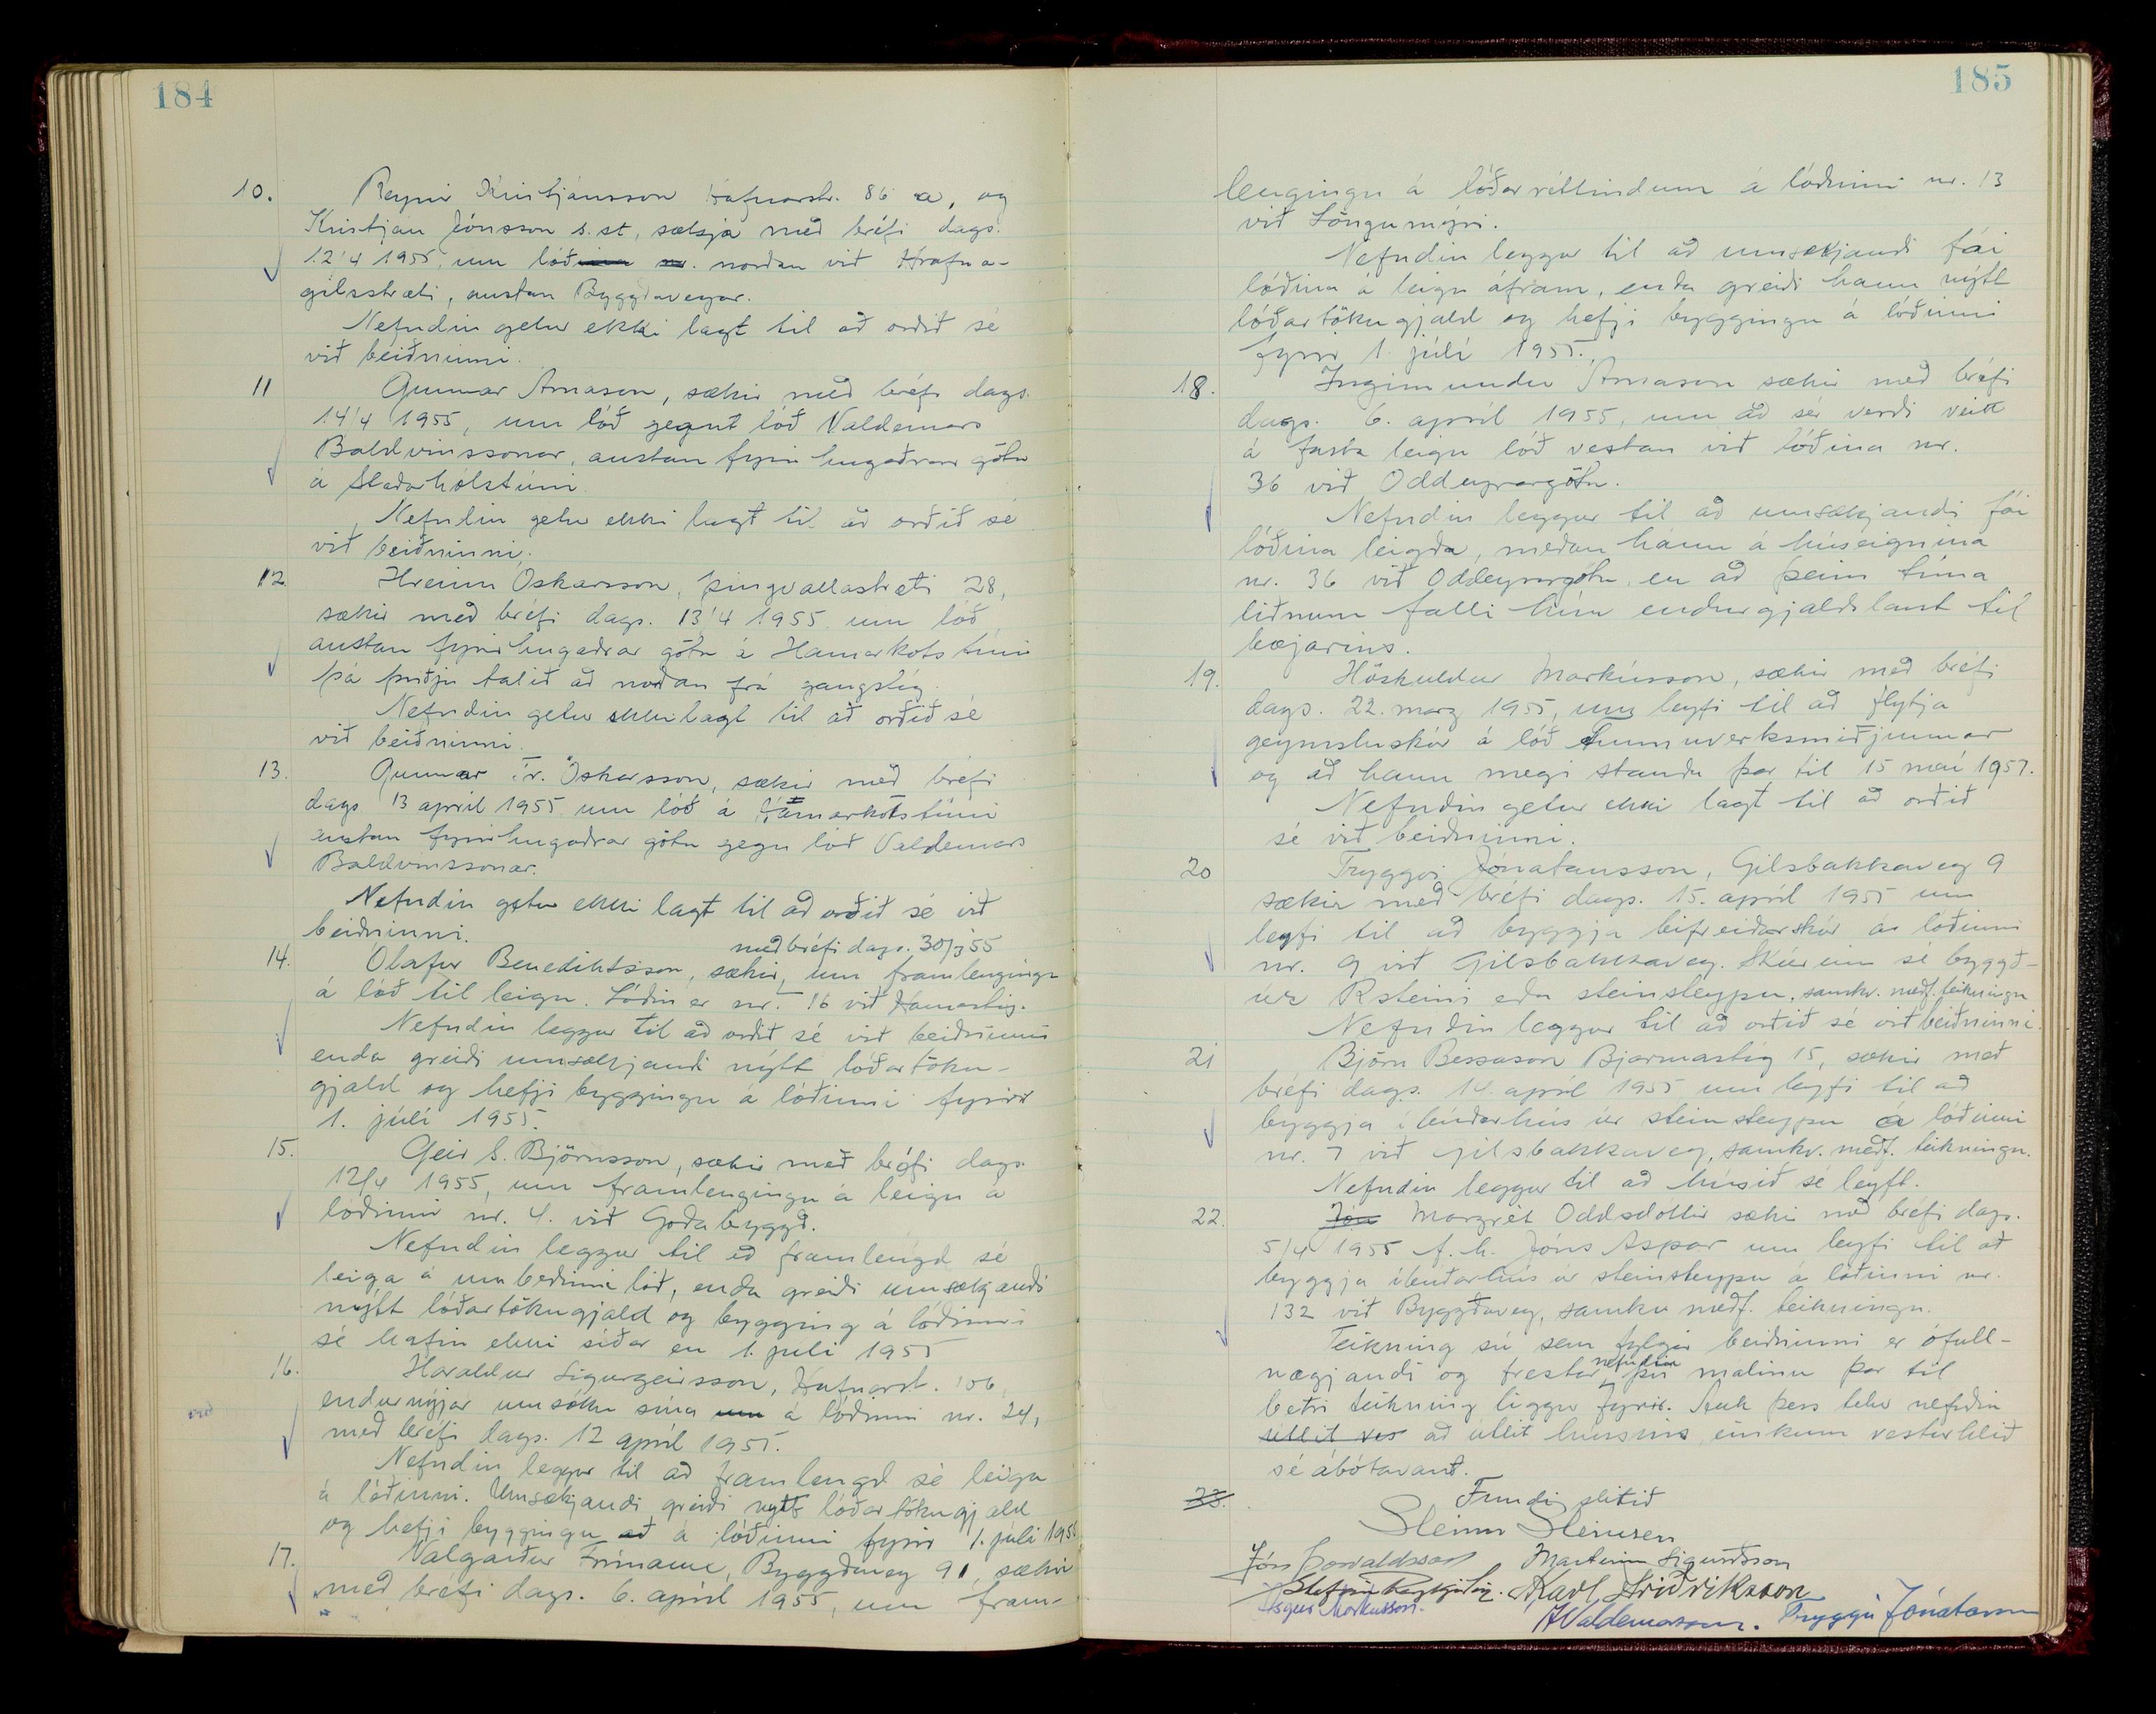 184
10. Reynir Kristjánsson Hafnarstr. 86 a, og
Kristján Jónsson s.st, sækja með bréfi dags.
12/4 1955, um lóðina nr. norðan við Hrafna-
gilsstræti, austan Byggðavegar.
Nefndin getur ekki lagt til að orðið sé
við beiðninni.
11 Gunnar Árnason, sækir með bréfi dags.
14/4 1955, um lóð gegnt lóð Valdemars
Baldvinssonar, austan fyrirhugaðrar götu
á Staðarhólstúni
Nefndin getur ekki lagt til að orðið sé
við beiðninni.
12 Hreinn Óskarsson, Þingvallastræti 28,
sækir með bréfi dags. 13/4 1955 um lóð
austan fyrirhugaðrar götu á Hamarkotstúni
þá þriðju talið að norðan frá gangstíg.
Nefndin getur ekki lagt til að orðið sé
við beiðninni.
13. Gunnar Tr. Óskarsson, sækir með bréfi
dags 13 apríl 1955 um lóð á Hamarkotstúni
austan fyrirhugaðrar götu gegn lóð Valdemars
Baldvinssonar.
Nefndin getur ekki lagt til að orðið sé við
beiðninni.
með bréfi dags. 30/3 55
14. Ólafur Benediktsson, sækir, um framlengingu
á lóð til leigu. Lóðin er nr. 16 við Hamarstíg.
Nefndin leggur til að orðið sé við beiðninni
enda greiði umsækjandi nýtt lóðartöku-
gjald og hefji byggingu á lóðinni fyrir
1. júlí 1955.
15. Geir S. Björnsson, sækir með bréfi dags.
12/4 1955, um framlengingu á leigu á
lóðinni nr. 4. við Goðabyggð.
Nefndin leggur til að framlengd sé
leiga á umbeðinni lóð, enda greiði umsækjandi
nýtt lóðartökugjald og bygging á lóðinni
sé hafin ekki síðar en 1. júlí 1955
16. Haraldur Sigurgeirsson, Hafnarst. 106
endurnýjar umsókn sína um á lóðinni nr. 24,
við
með bréfi dags. 12 apríl 1955.
Nefndin leggur til að framlengd sé leiga
á lóðinni. Umsækjandi greiði nýtt lóðartökugjald
og hefji byggingu að á lóðinni fyrir 1. júlí 1955
17. Valgarður Frímann, Byggðaveg 91, sækir
með bréfi dags. 6. apríl 1955, um fram-
185
lengingu á lóðarréttindum á lóðinni nr. 13
við Löngumýri.
Nefndin leggur til að umsækjandi fái
lóðina á leigu áfram, enda greiði hann nýtt
lóðartökugjald og hefji byggingu á lóðinni
fyrir 1. júlí 1955.
18. Ingimundur Árnason sækir með bréfi
dags. 6. apríl 1955, um að sér verði veitt
á fasta leigu lóð vestan við lóðina nr.
36 við Oddeyrargötu.
Nefndin leggur til að umsækjandi fái
lóðina leigða, meðan hann á húseignina
nr. 36 við Oddeyrargötu, en að þeim tíma
liðnum falli hún endurgjaldslaust til
bæjarins.
19. Höskuldur Markússon, sækir með bréfi
dags. 22. marz 1955, um leyfi til að flytja
geymsluskúr á lóð Tunnuverksmiðjunnar
og að hann megi standa þar til 15 maí 1957.
Nefndin getur ekki lagt til að orðið
sé við beiðninni.
20 Tryggvi Jónatansson, Gilsbakkaveg 9
sækir með bréfi dags. 15. apríl 1955 um
leyfi til að byggja bifreiðarskúr á lóðinni
nr. 9 við Gilsbakkaveg. Skúrinn sé byggð-
úr Rsteini eða steinsteypu, samkv. meðf. teikningu
Nefndin leggur til að orðið sé við beiðninni.
21 Björn Bessason Bjarmastíg 15, sækir með
bréfi dags. 14 apríl 1955 um leyfi til að
byggja íbúðarhús úr steinsteypu á lóðinni
nr. 7 við Gilsbakkaveg, samkv. meðf. teikningu.
Nefndin leggur til að húsið sé leyft.
22. Jón Margrét Oddsdóttir sækir með bréfi dags.
5/4 1955 f. h. Jóns Aspar um leyfi til að
byggja íbúðarhús úr steinsteypu á lóðinni nr.
132 við Byggðaveg, samkv meðf. teikningu.
Teikning sú sem fylgir beiðninni er ófull-
nægjandi og frestar nefndin því málinu þar til
betri teikning liggur fyrir. Auk þess telur nefndin
útlit ves að útlit hússins einkum vesturhlið
sé ábótavant.
23. Fundi slitið
Steinn Steinsen
Jón Þorvaldsson Marteinn Sigurðsson
Stefán Reykjalín. Karl Friðriksson
Ásgeir Markússon. A Valdemarsson. Tryggvi Jónatansson